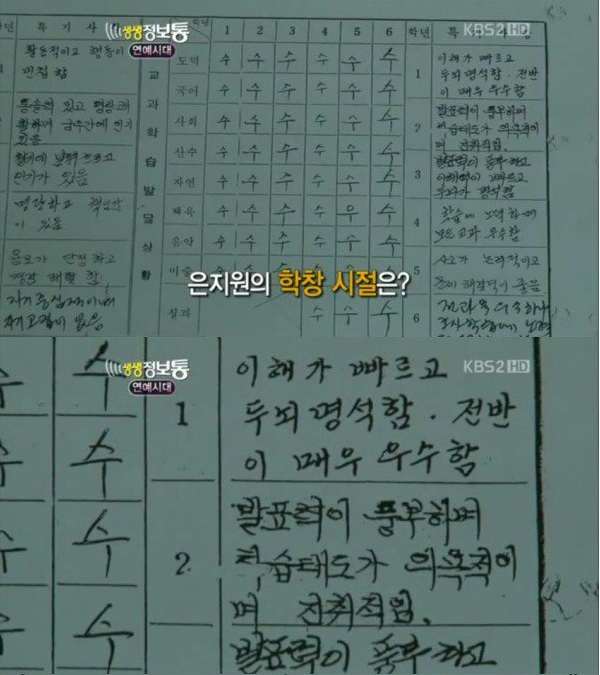 생생정보통
연예시대
KBS2 HD
학년 특 기 사 학년 1 2 3 4 5 6 학년 특
활동적이고 행동이
민첩함
통솔력 있고 명랑쾌
활하며 급우간에 인기
있음
인기가 있음
명랑하고 책임감
이 있음
용모가 단정하고
교과학습발달상황
도덕 수 수 수 수 수 수
국어 수 수 수 수 수 수
사회 수 수 수 수 수 수
산수 수 수 수 수 수 수
자연 수 수 수 수 수 수
체육 수 수 수 수 우 수
음악 수 수 수 수 수 수
미술
실과 수 수 수
1 이해가 빠르고
두뇌 명석함. 전반
이 매우 우수함
2 발표력이 풍부하며
학습태도가 의욕적이
며 진취적임.
3 발표력이 풍부하고
이해력이 빠르고
두뇌가 명석함
4 학습에 노력하며
모든 교과 우수함
5
6
은지원의 학창 시절은?
생생정보통
연예시대
KBS2 HD
수
수
수
수
1 이해가 빠르고
두뇌 명석함. 전반
이 매우 우수함
2 발표력이 풍부하며
학습태도가 의욕적이
며 진취적임.
발표력이 풍부하고